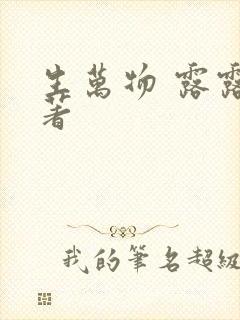 生萬物 露露
著
我的筆名超級